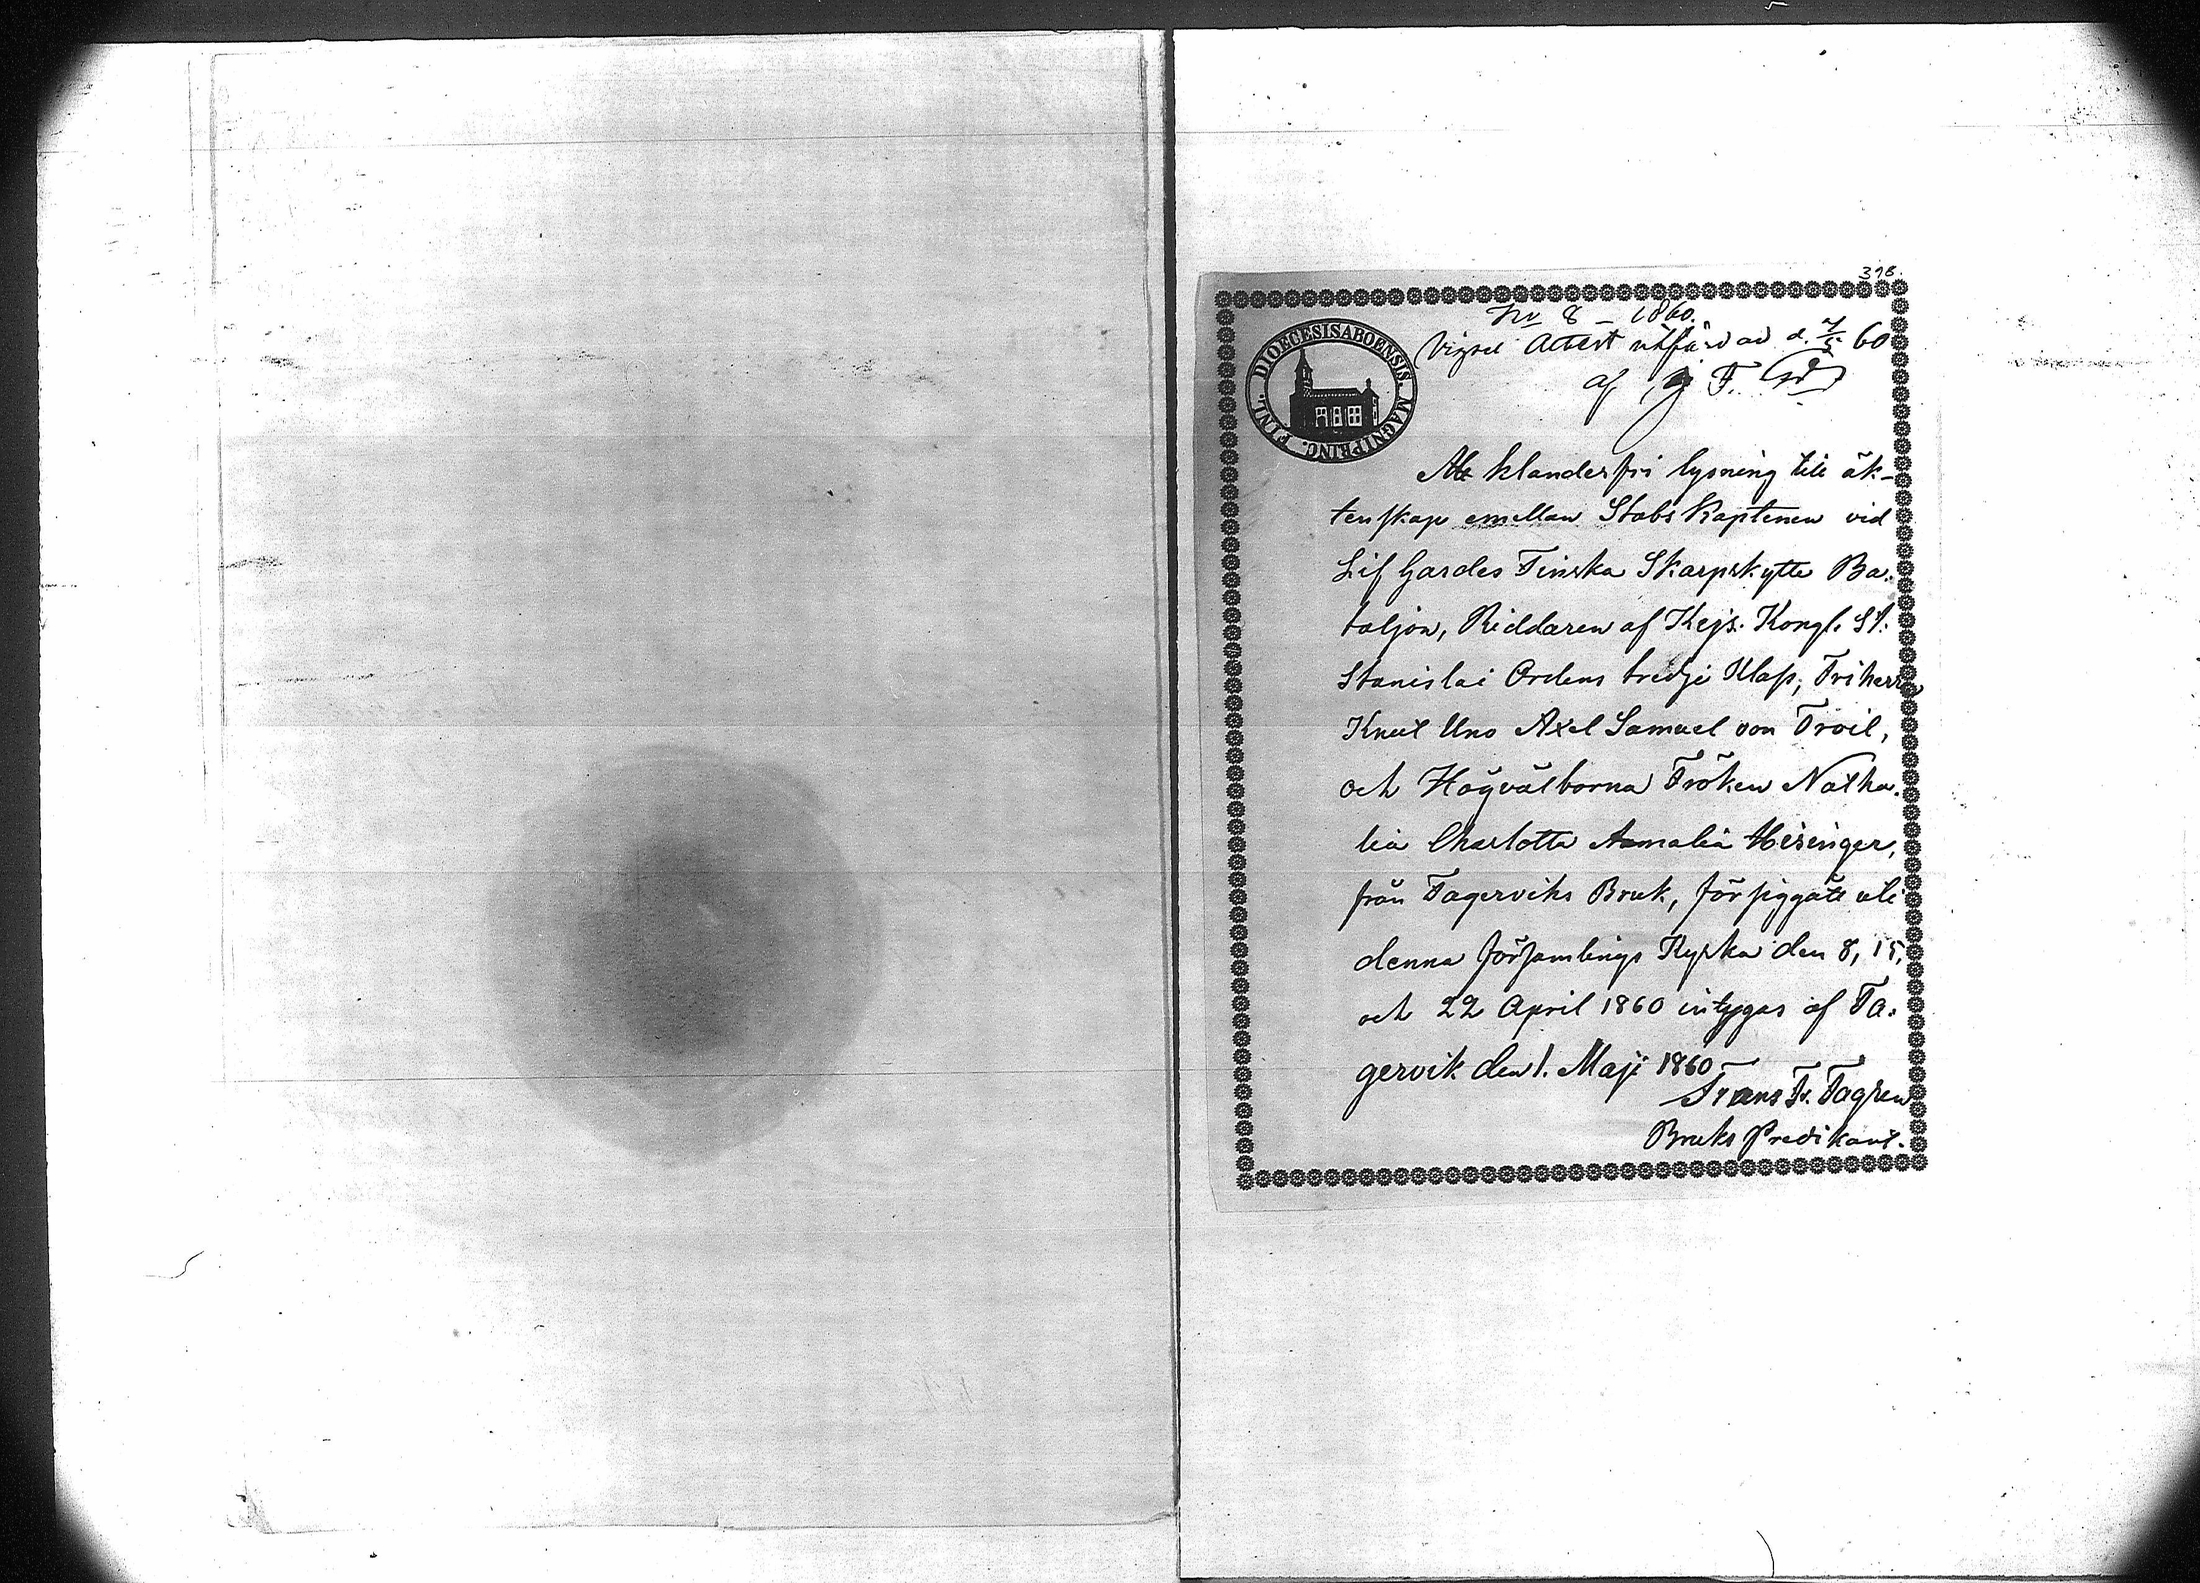 398.
No 8 – 1860.
Vigsel Attest utfärdad d. 7/5 60
af F.
DIOECESIS ABOENSIS MAGNI PRINC. FINL.
Att klanderfri lysning till äk-
tenskap emellan Stabs Kaptenen vid
Lif Gardes Finska Skarpskytte Ba-
taljon, Riddaren af Kejs. Kongl. St.
Stanislai Ordens tredje Klass, Friherrn
Knut Uno Axel Samuel von Troil,
och Högvälborna Fröken Natha-
lia Charlotta Amalia Hisinger,
från Fagerviks Bruk, försiggått uti
denna församlings Kyrka den 8, 15,
och 22 April 1860 intygas af Fa-
gervik den 1. Maji 1860
Frans Fr.
Bruks Predikant.